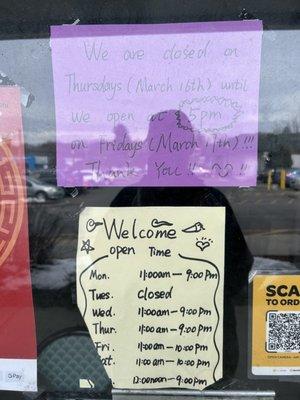 We are closed on
Thursdays (March 16th) until
we open at 5pm
on Fridays (March 17th)!!!
Thank You!!
Welcome
open Time
Mon. 11:00am - 9:00pm
Tues. Closed
Wed. 11:00am - 9:00pm
Thur. 11:00am - 9:00pm
Fri. 11:00am - 10:00pm
Sat. 11:00am - 10:00pm
12:00noon - 9:00pm
SCA
TO ORD
Pay